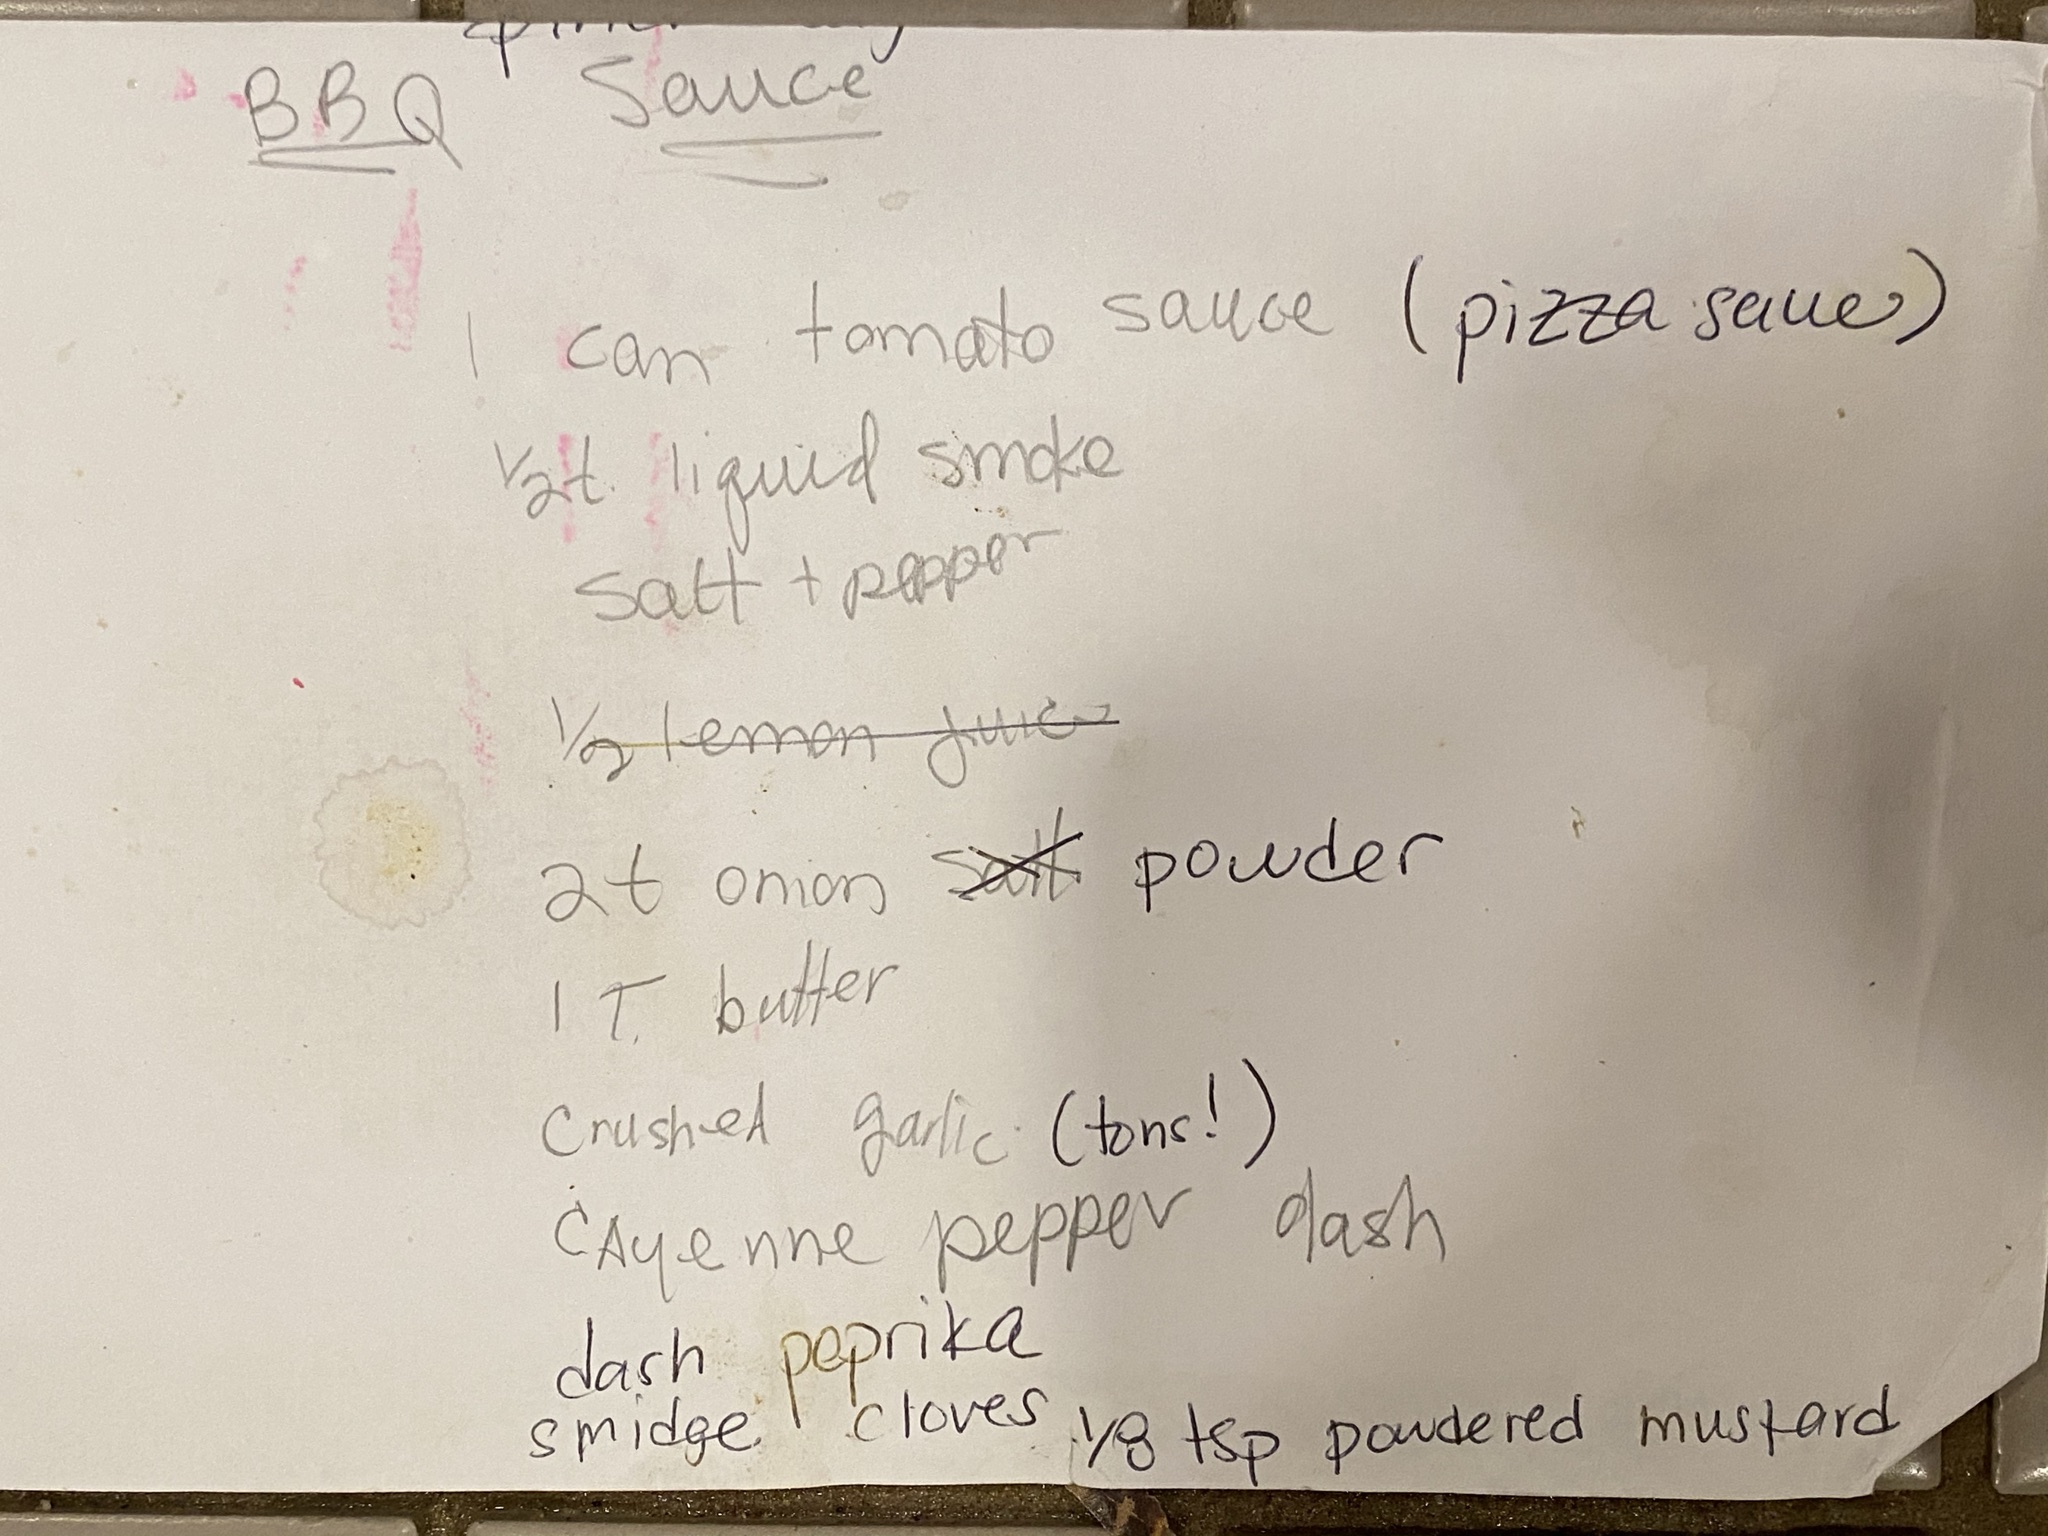 BBQ Sauce
1 can tomato sauce (pizza sauce)
1/2 t. liquid smoke
salt + pepper
1/2 lemon juice
2 t onion salt powder
1 T. butter
crushed garlic (tons!)
cAyenne pepper dash
dash paprika
smidge cloves 1/8 tsp powdered mustard